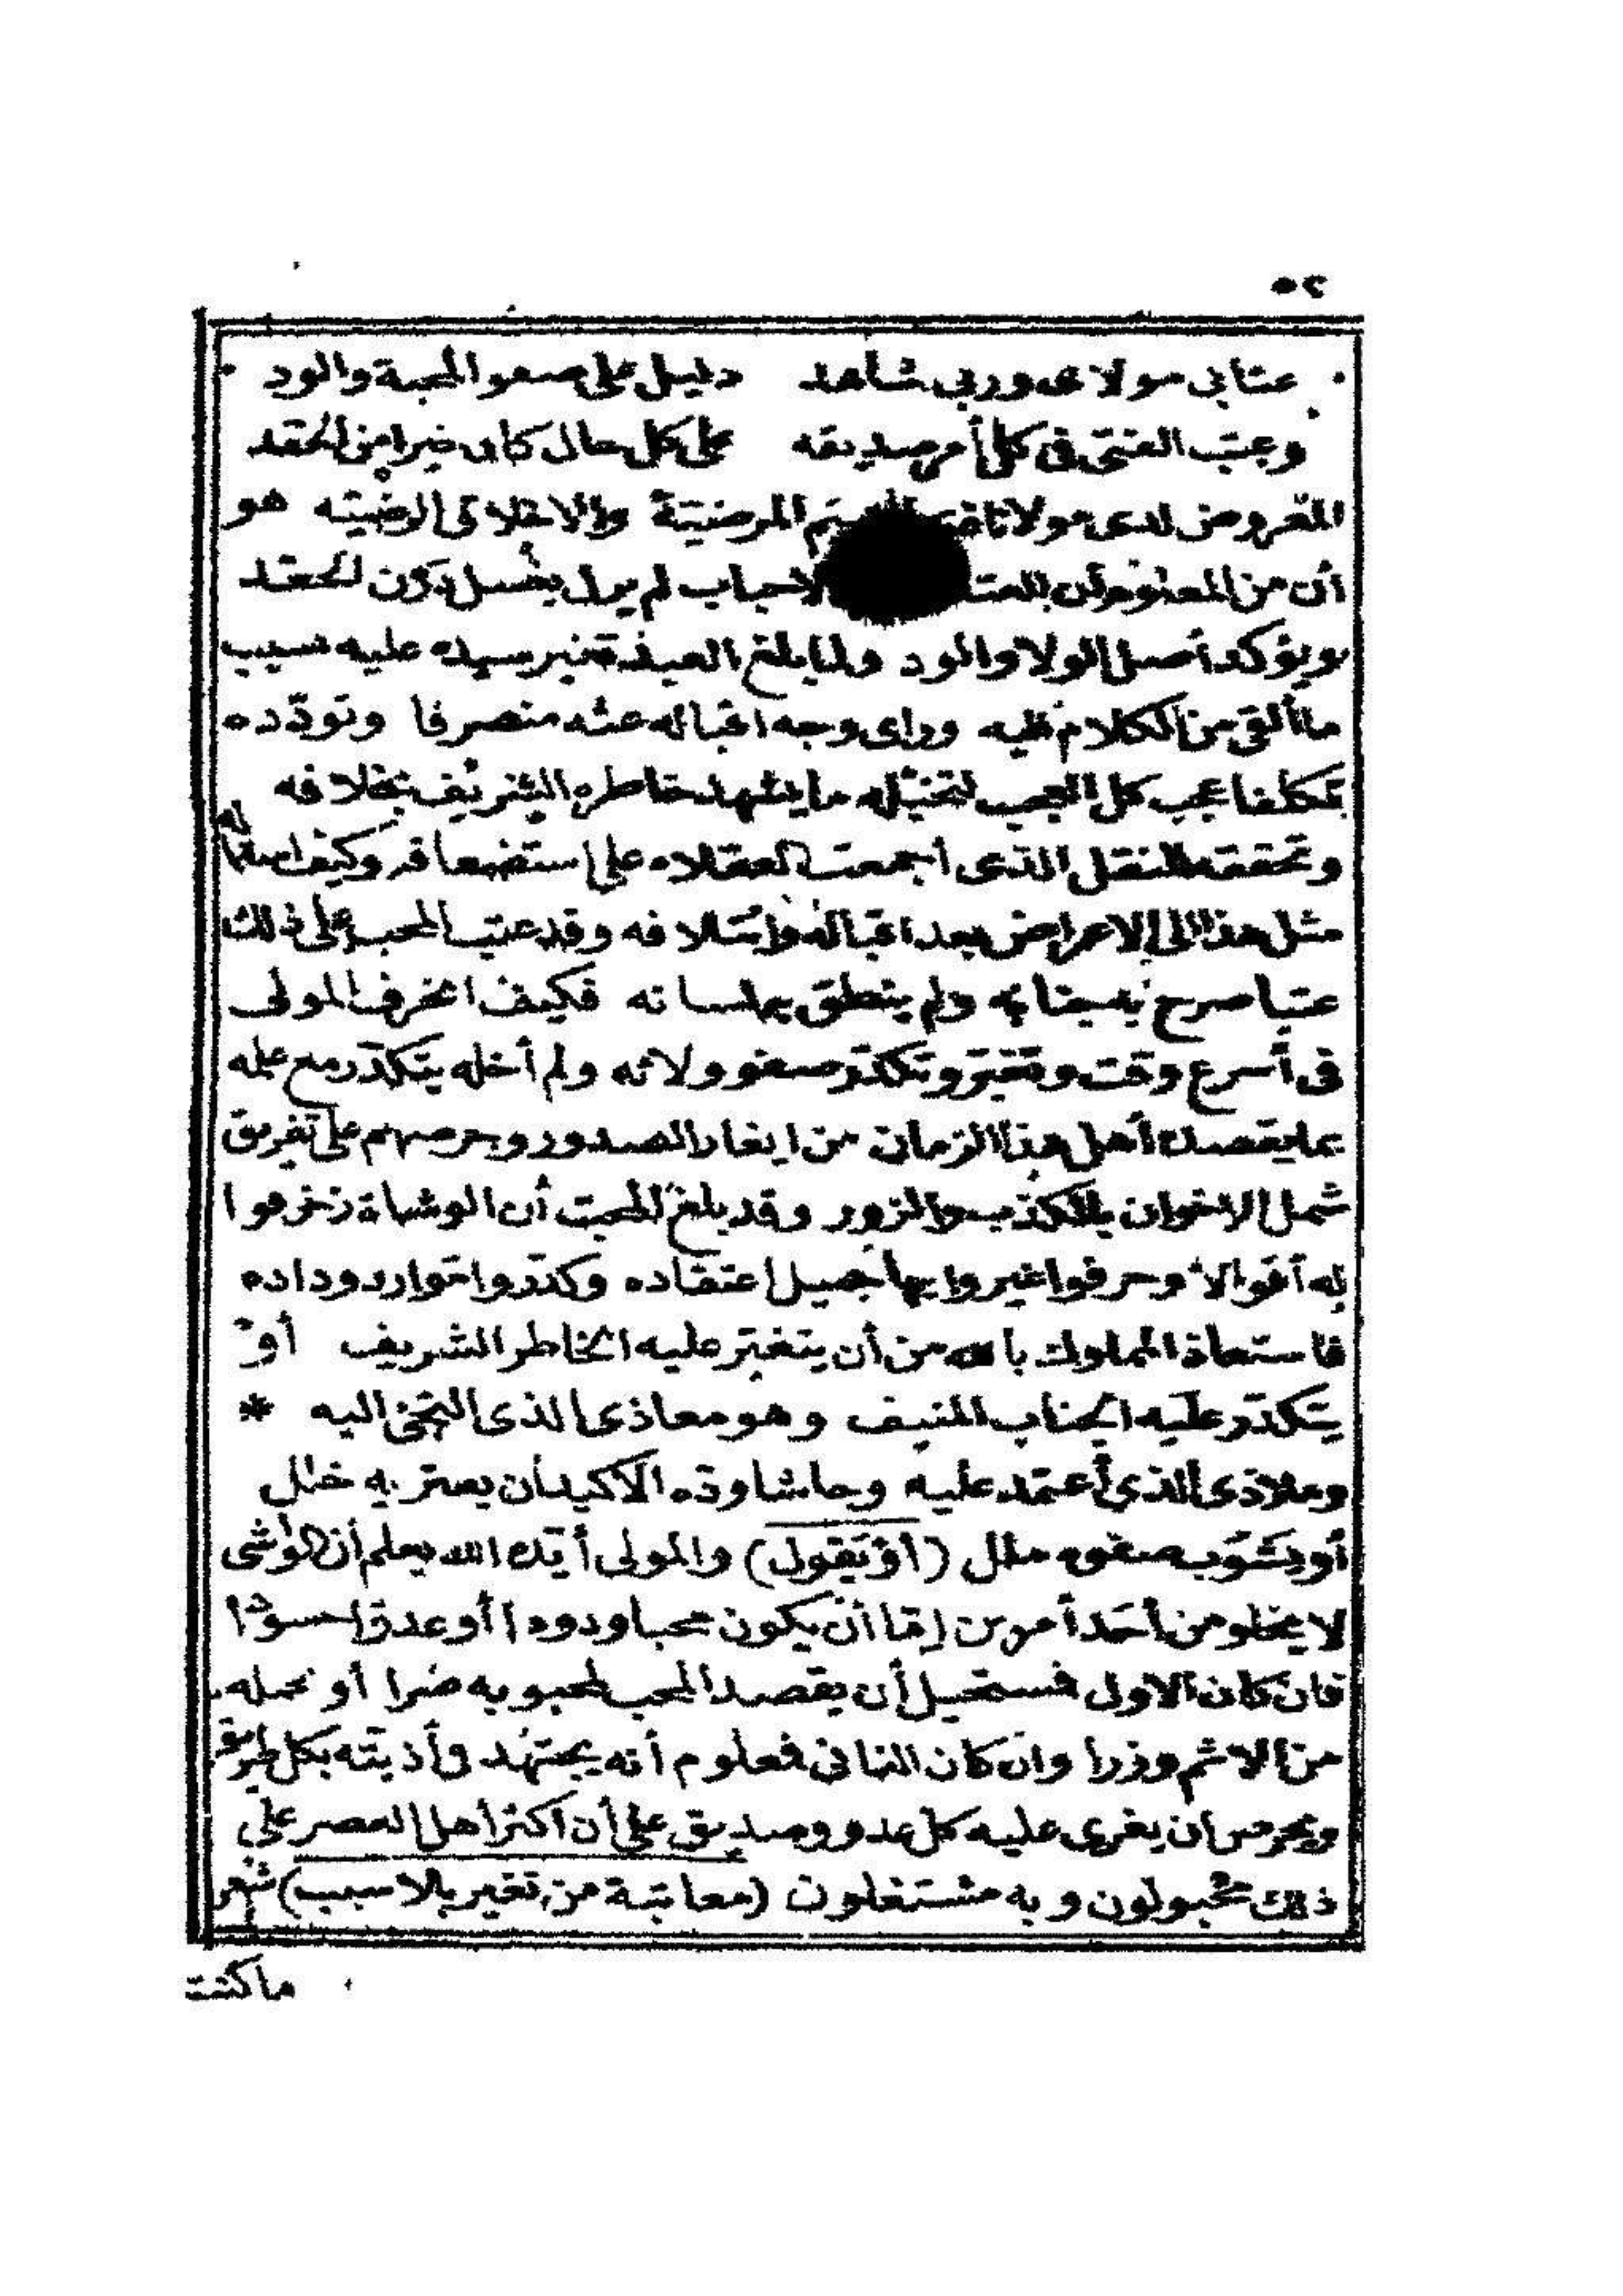 ٥٢
عتابى مولاى وربى شاهد دليل على صفو المحبة والود
وعتب الفتى فى كل أمر صديقه على كل حال كان خيرا من الحقد
المعروض لدى مولانا المرضيّة والاخلاق الرضيّه هو
أن من المعلوم أن الاحباب لم يزل يغسل درن الحقد
ويؤكد أصل الولا والود ولما بلغ العبد تغير سيده عليه بسبب
ما ألقى من الكلام اليه ورأى وجه اقباله عنه منصرفا وتودّده
تكلفا عجب كل العجب لتخيّله ما يشهد خاطره الشريف بخلافه
وتحققه للنقل الذى أجمعت العقلاء على استضعافه وكيف أماله
مثل هذا الى الاعراض بعد اقباله وائتلافه وقد عتب المحب على ذلك
عتبا صرح به جنابه ولم ينطق به لسانه فكيف انحرف المولى
فى أسرع وقت وتغير وتكدّر صفو ولائه ولم أخله يتكدّر مع علمه
بما يقصده أهل هذا الزمان من ايغار الصدور وحرصهم على تفريق
شمل الاخوان بالكذب والزور وقد بلغ المحب أن الوشاة زخرفوا
له أقوالا وحرفوا غيروا بها جميل اعتقاده وكدّروا موارد وداده
فاستعاذ المملوك بالله من أن يتغير عليه الخاطر الشريف أو
يتكدّر عليه الجناب المنيف وهو معاذى الذى التجئ اليه *
وملاذى الذى أعتمد عليه وحاشا ودّه الاكيد أن يعتريه خلل
أو يشوب صفوه ملل (أو تقول) والمولى أيّده الله يعلم أن الواشى
لا يخلو من أحد أمرين إمّا أن يكون محبا ودودا أو عدوّا حسودا
فان كان الاول فمستحيل أن يقصد المحب لمحبوبه ضرا أو يحمله
من الاثم وزرا وان كان الثانى فمعلوم أنه يجتهد فى أذيته بكل طريق
ويحرص أن يغرى عليه كل عدو وصديق على أن اكثر أهل العصر على
ذلك مجبولون وبه مشتغلون (معاتبة من تغير بلا سبب) شعر
ما كنت